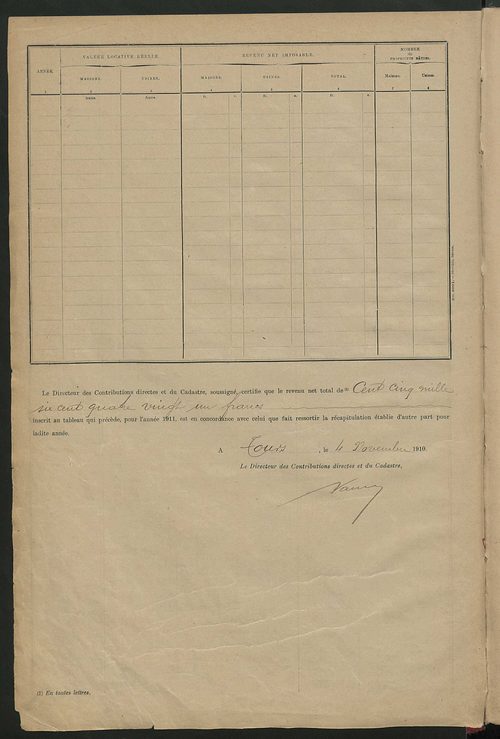 ANNÉE
VALEUR LOCATIVE RÉELLE
REVENU NET IMPOSABLE.
NOMBRE
de
PROPRIÉTÉS BÂTIES.
MAISONS. USINES. MAISONS. USINES. TOTAL. Maisons. Usines.
1 2 3 4 5 6 7 8
francs. francs. fr. c. fr. c. fr. c.
Le Directeur des Contributions directes et du Cadastre, soussigné, certifie que le revenu net total de (1) Cent cinq mille
six cent quatre vingt un francs
inscrit au tableau qui précède, pour l'année 1911, est en concordance avec celui que fait ressortir la récapitulation établie d'autre part pour
ladite année.
A Tours , le 4 Novembre 1910.
Le Directeur des Contributions directes et du Cadastre,
(1) En toutes lettres.